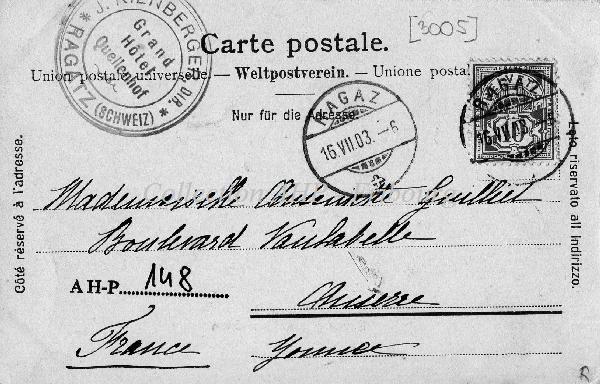 [3005]
* J. KIENBERGER DIR. *
RAGATZ (SCHWEIZ)
Grand
Hôtel
Quellenhof
Carte postale.
Union postale universelle. — Weltpostverein. — Unione postal
Nur für die Adresse.
RAGAZ
16.VII.03.–6
RAGAZ
16.VII.03.
Côté réservé à l'adresse.
Lato riservato all indirizzo.
Mademoiselle Guillet
Boulevard Vaulabelle
A H-P. 148
Auxerre
France Yonne
R